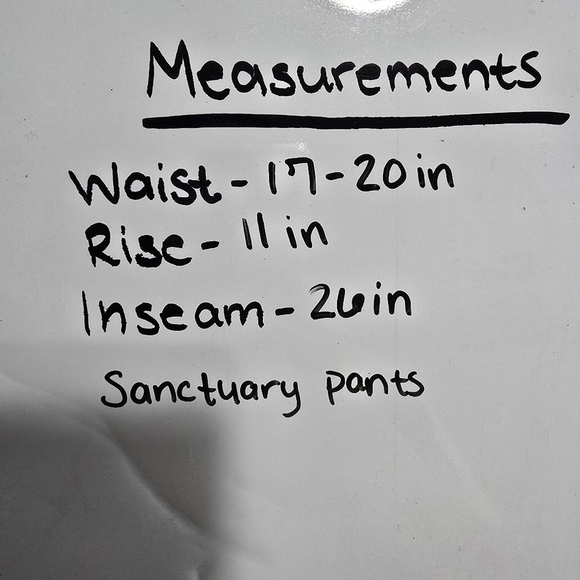 Measurements
Waist - 17-20 in
Rise - 11 in
Inseam - 26in
Sanctuary pants